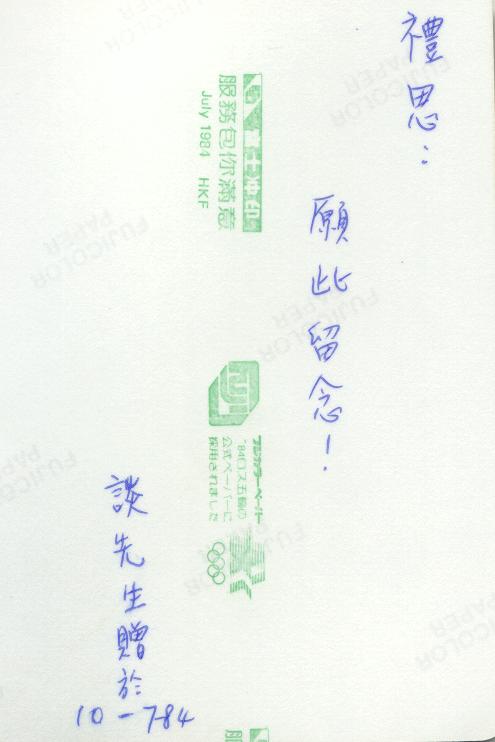 禮思：
願此留念！
談先生贈於
10-7-84
富士冲印
服務包你滿意
July 1984 HKF
FUJI
フジカラーペーパー
'84ロス五輪の
公式ペーパーに
採用されました
FUJICOLOR
PAPER
FUJICOLOR
PAPER
FUJICOLOR
PAPER
FUJICOLOR
PAPER
FUJICOLOR
PAPER